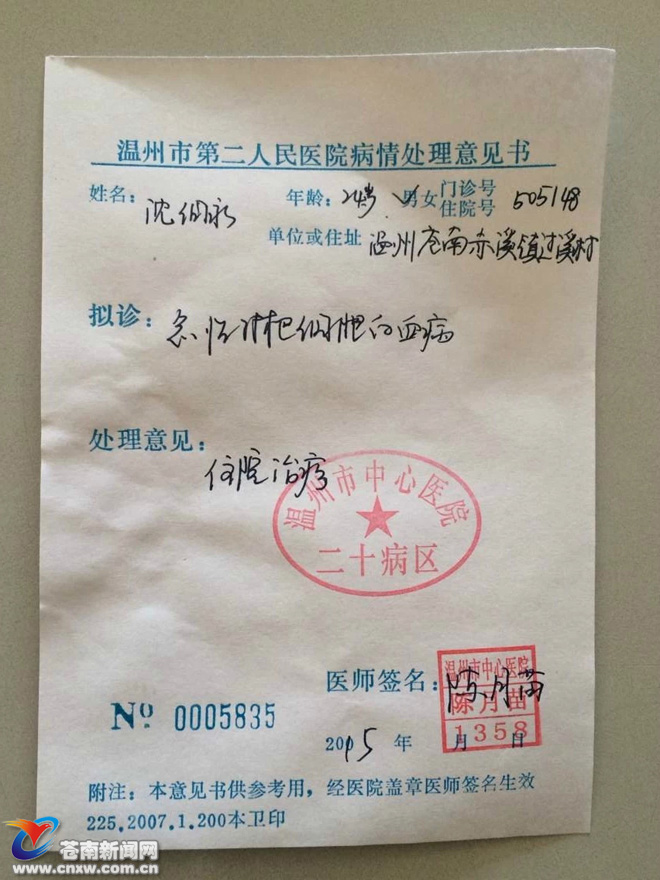 温州市第二人民医院病情处理意见书
姓名: 沈 年龄: 24岁 男女 门诊号 住院号 505148
单位或住址 温州苍南赤溪镇过溪村
拟诊: 急性淋巴细胞白血病
处理意见:
住院治疗
温州市中心医院
二十病区
医师签名: 陈月苗
温州市中心医院
陈月苗
1358
Nº 0005835
2015 年 月 日
附注: 本意见书供参考用, 经医院盖章医师签名生效
225.2007.1.200本卫印
苍南新闻网
www.cnxw.com.cn